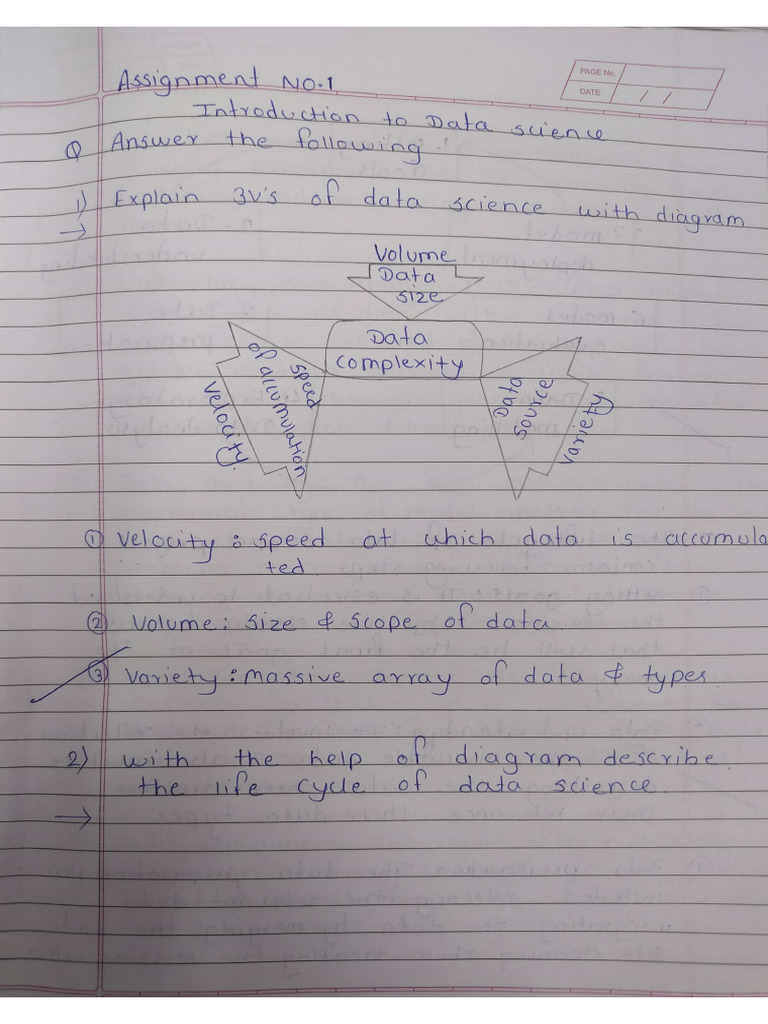 PAGE No.
DATE / /
Assignment No.1
Introduction to Data science.
Q Answer the following.
1) Explain 3V's of data science with diagram
→
Volume
Data
size
Data
complexity
speed
of accumulation
velocity
Data
source
variety
① velocity : speed at which data is accumula
ted.
② volume : size & scope of data
③ variety : massive array of data & types.
2) with the help of diagram describe.
the life cycle of data science.
→